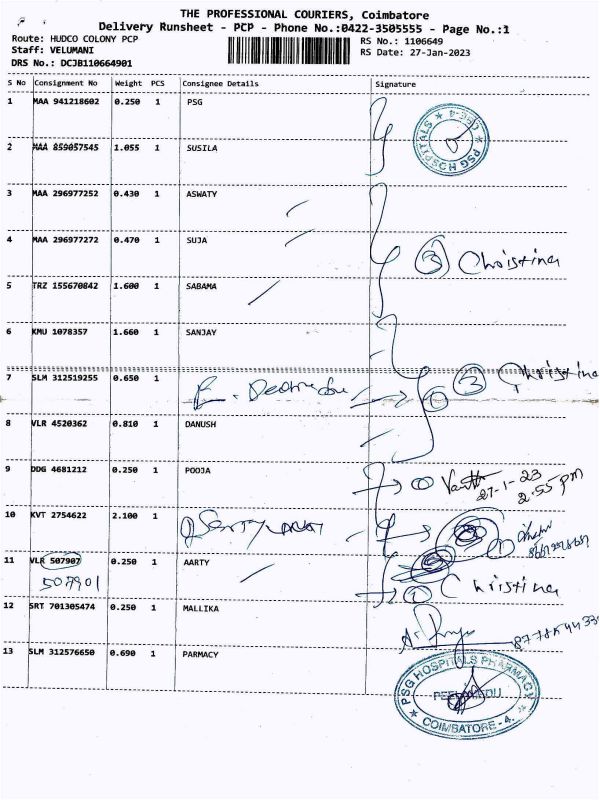 THE PROFESSIONAL COURIERS, Coimbatore
Delivery Runsheet - PCP - Phone No.:0422-3505555 - Page No.:1
Route: HUDCO COLONY PCP RS No.: 1106649
Staff: VELUMANI RS Date: 27-Jan-2023
DRS No.: DCJB110664901
S No Consignment No Weight PCS Consignee Details Signature
1 MAA 941218602 0.250 1 PSG
PSG HOSPITALS CBE-4
2 MAA 859057545 1.055 1 SUSILA
3 MAA 296977252 0.430 1 ASWATY
4 MAA 296977272 0.470 1 SUJA
3 Christina
5 TRZ 155670842 1.600 1 SABAMA
6 KMU 1078357 1.660 1 SANJAY
7 SLM 312519255 0.650 1
3 Christina
8 VLR 4520362 0.810 1 DANUSH
9 DDG 4681212 0.250 1 POOJA
27-1-23
2.55 pm
10 KVT 2754622 2.100 1
11 VLR 507907 0.250 1 AARTY
507901
1 Christina
12 SRT 701305474 0.250 1 MALLIKA
13 SLM 312576650 0.690 1 PARMACY
PSG HOSPITALS PHARMACY
COIMBATORE - 4.